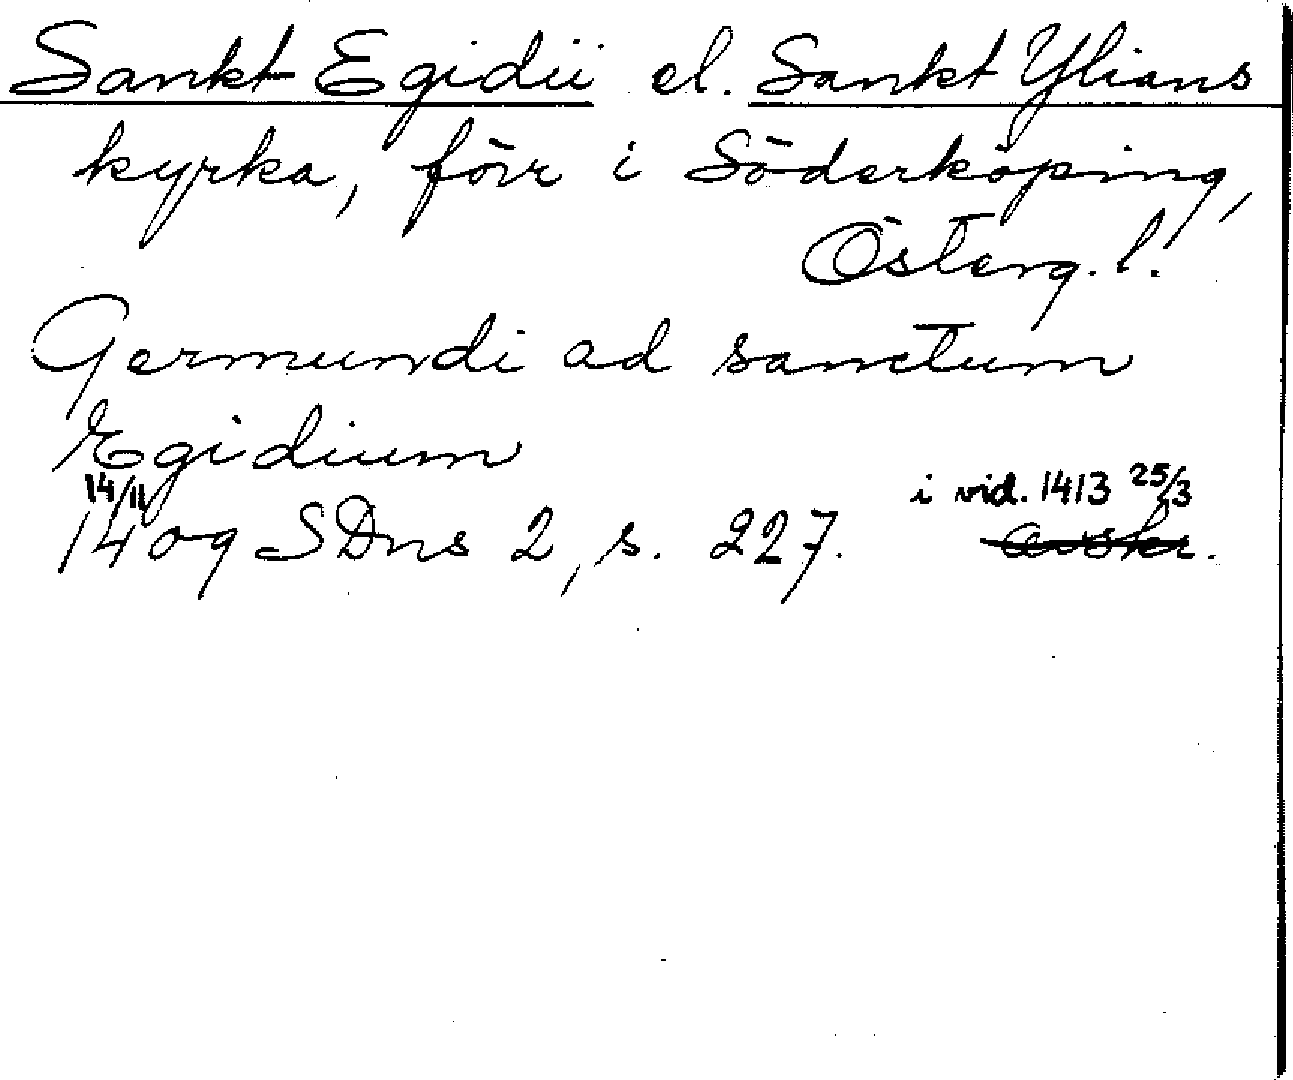 Sankt Egidii el. Sankt Ylians
kyrka, förr i Söderköping,
Österg. l.
Germundi ad sanctum
Egidium
14/11 i vid. 1413 25/3
1409 SDns 2, s. 227. avskr.